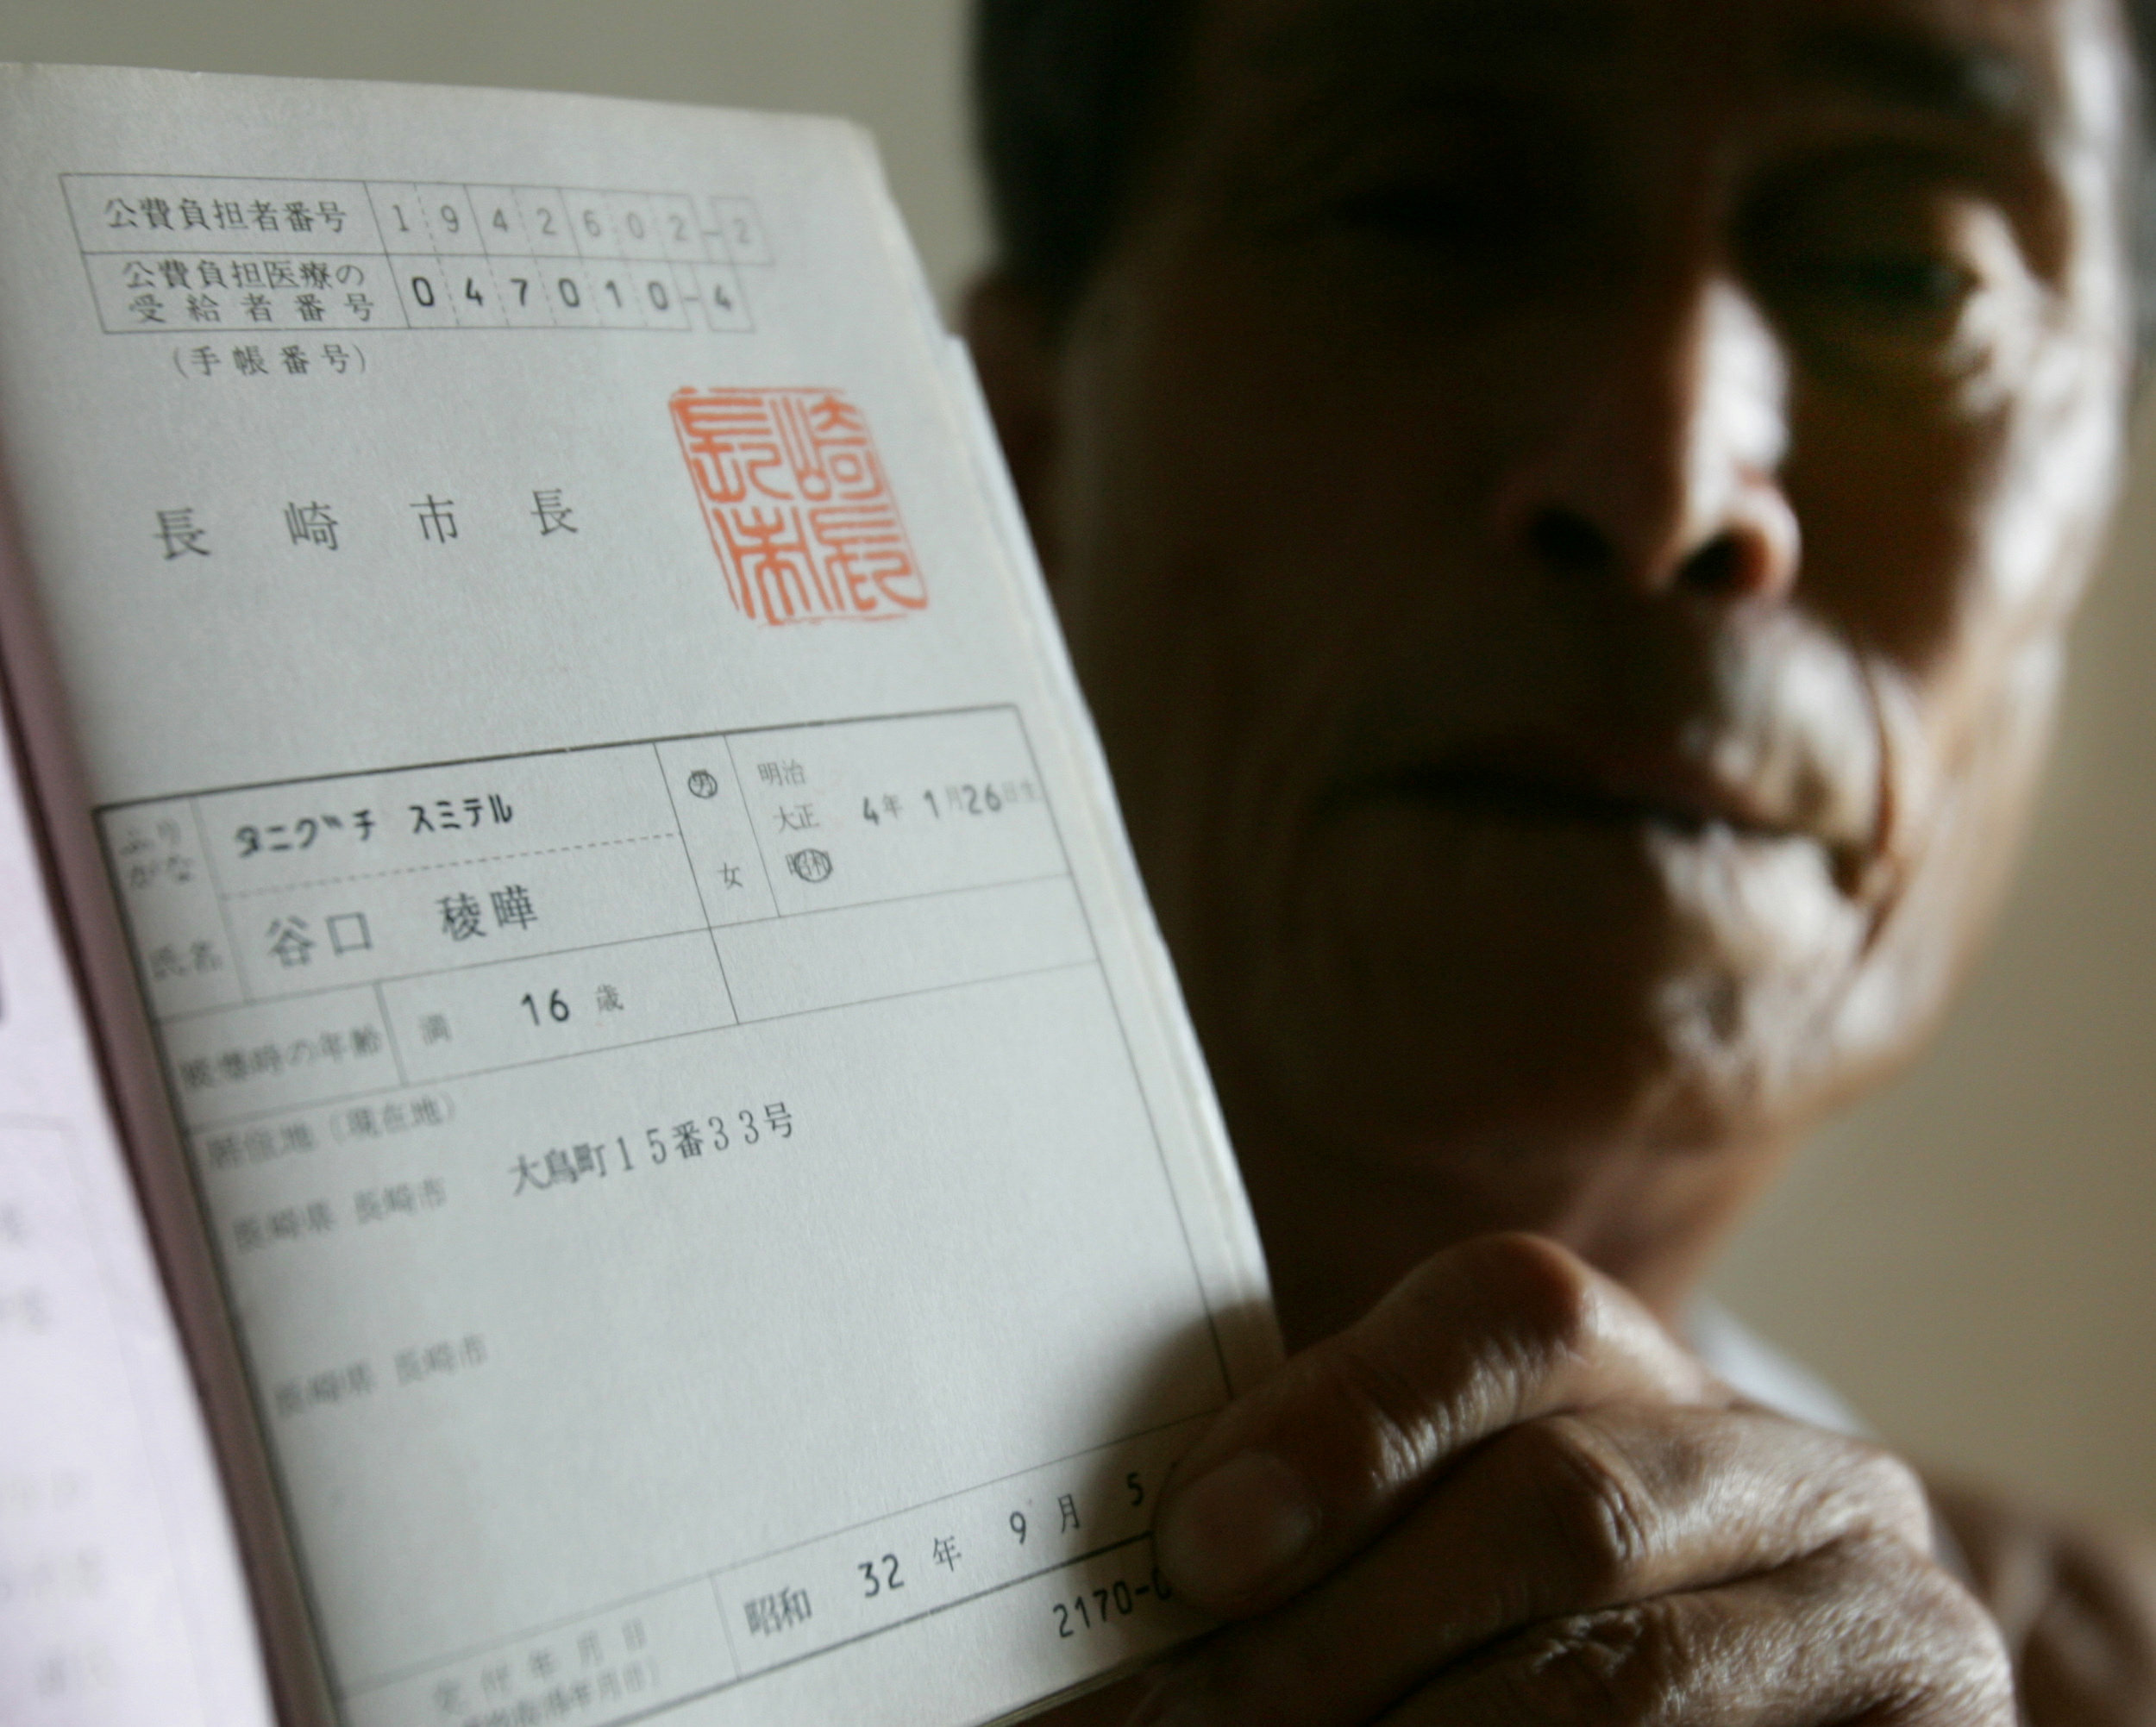 公費負担者番号 1942602-2
公費負担医療の
受給者番号 047010-4
(手帳番号)
長崎市長
長崎市長
ふりがな タニグチ スミテル
男 女
明治
大正
昭和
4年 1月26日生
氏名 谷口 稜曄
被爆時の年齢 満 16 歳
居住地(現在地)
長崎県 長崎市 大鳥町15番33号
長崎県 長崎市
交付年月日 昭和 32 年 9 月 5
2170-